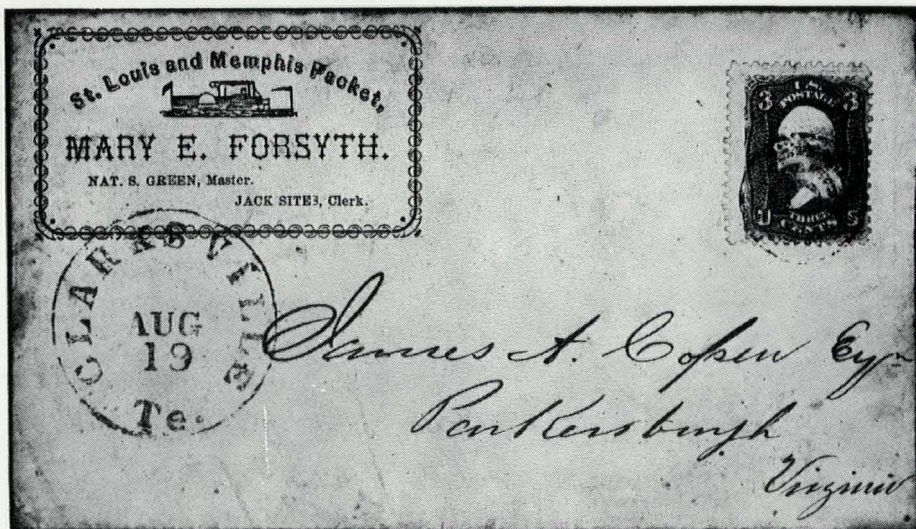 St. Louis and Memphis Packet,
MARY E. FORSYTH.
NAT. S. GREEN, Master.
JACK SITES, Clerk.
3 U.S. 3
POSTAGE
U THREE S
CENTS
CLARKSVILLE
AUG
19
Te.
James A. Copen Esqr
Parkersburgh
Virginia